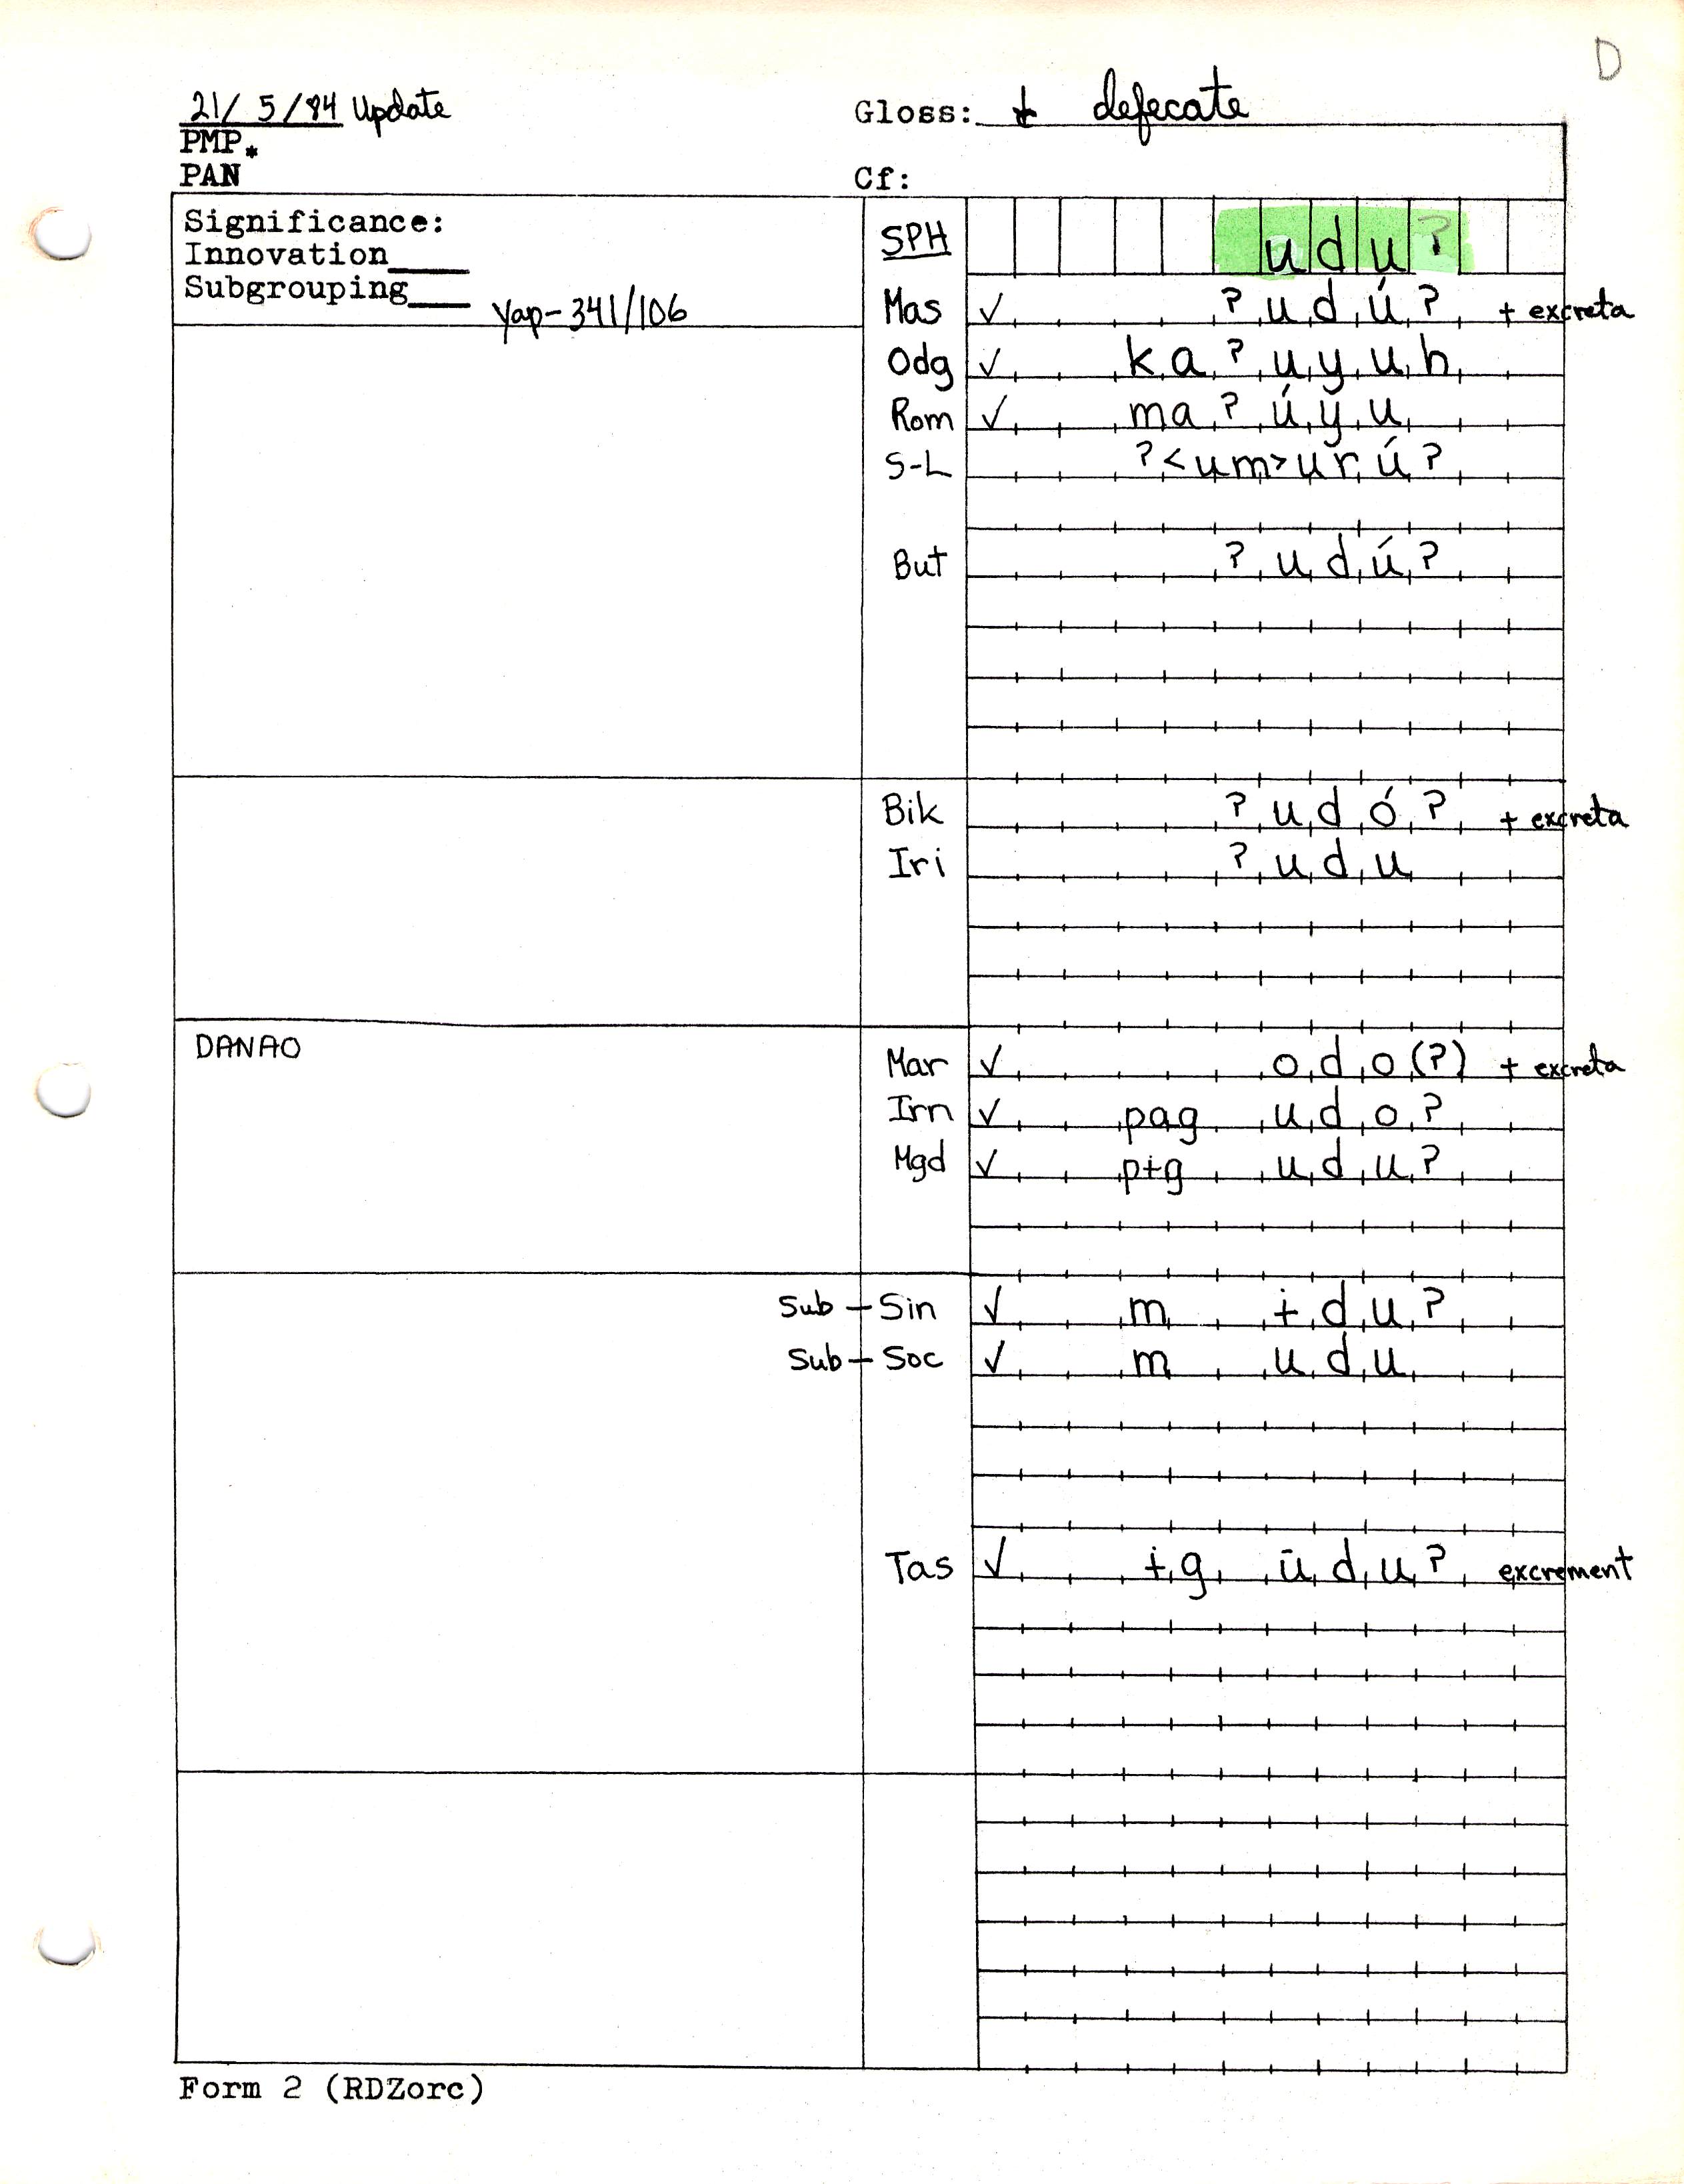 D
21/ 5/84 Update
Gloss: ɨ defecate
PMP*
PAN
Cf:
Significance:
Innovation____
Subgrouping____
Yap-341/106
SPH udu?
Mas ✓ ?udú? + excreta
Odg ✓ ka?uyuh
Rom ✓ ma?úy̌u
S-L ?<um>urú?
But ?udú?
Bik ?udó? + excreta
Iri ?udu
DANAO
Mar ✓ odo(?) + excreta
Irn ✓ pag udo?
Mgd ✓ pɨg udu?
Sub-Sin ✓ m ɨdu?
Sub-Soc ✓ m udu
Tas ✓ ɨg ūdu? excrement
Form 2 (RDZorc)